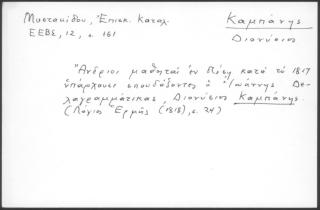 Μυστακίδου, Ἐπισκ. Κατάλ.
ΕΕΒΣ, 12, σ. 161
Καμπάνης
Διονύσιος
Ἄνδριοι μαθηταὶ ἐν Χίῳ κατὰ τὸ 1817
ὑπάρχουσι σπουδάζοντες ὁ Ἰωάννης Δε-
λαγραμμάτικας, Διονύσιος Καμπάνης.
(Λόγιος Ἑρμῆς (1818), σ. 24)